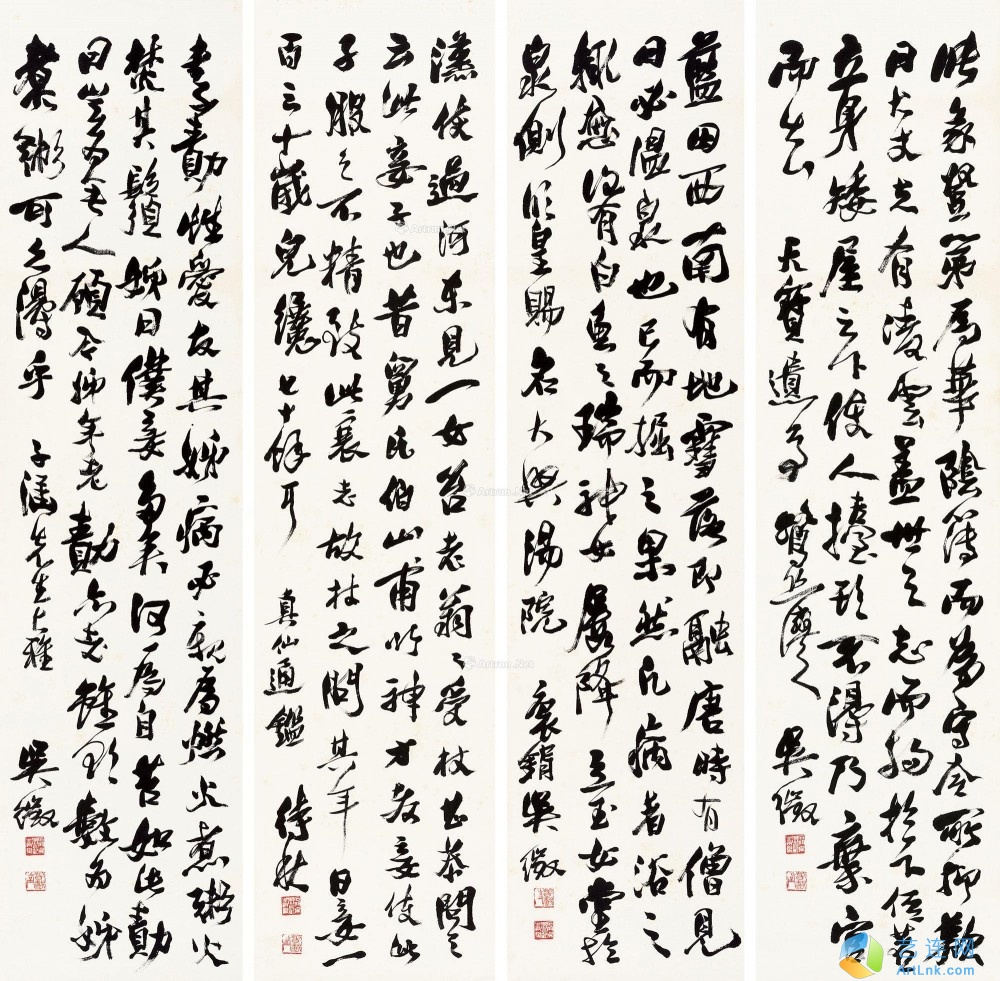 張彖登第為華陰簿而為守令所抑歎
曰大丈夫有凌雲蓋世之志而拘於下位若
立身矮屋之下使人擡頭不得乃棄官
而出山 天寶遺事 鷺絲灣人 吳徵
藍田西南有地雪落即融唐時有僧見
曰必溫泉也已而掘之果然凡病者浴之
輒應復有白魚之瑞神女屢降立玉女堂於
泉側明皇賜名大興湯院 褎鋗吳徵
漢使過河東見一女笞老翁〻受杖甚恭問之
云此妾子也昔舅氏伯山甫以神方教妾使此
子服之不精致此衰老故杖之問其年曰妾一
百三十歲兒纔七十餘耳 真仙通鑑 待秋
李勣性愛友其姊病必親為燃火煮粥火
焚其鬚姊曰僕妾多矣何為自苦如此勣
曰豈為無人顧今姊年老勣亦老雖欲數為姊
煮粥可久得乎 子涵先生大雅 吳徵
Artron.Net
艺连网
ArtLnk.com